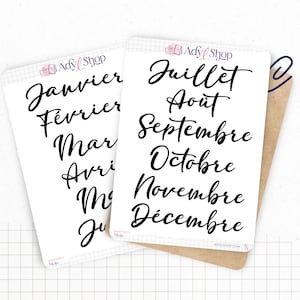 Ady & Shop
Janvier
Février
Mar
Avri
Ma
Ju
Ady & Shop
Juillet
Août
Septembre
Octobre
Novembre
Décembre